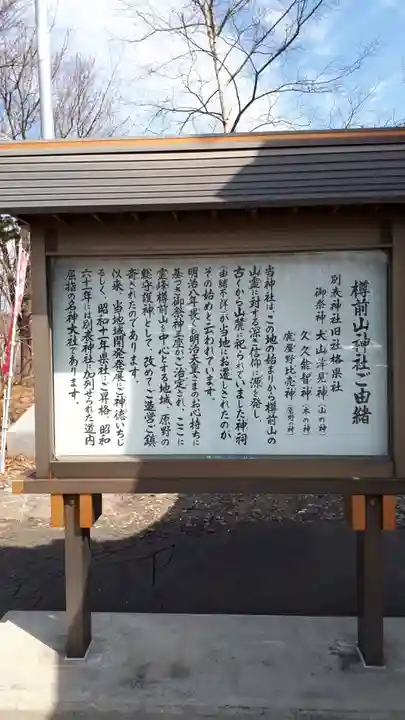 樽前山神社ご由緒
別表神社旧社格県社
御祭神 大山津見神(山の神)
久久能智神(木の神)
鹿屋野比売神(原野の神)
当神社は、この地の始まりから樽前山の
山霊に対する深き信仰に源を発し、
古くから山麓に祀られていました神祠
(由緒不詳)が当地にお遷しされたのが
その始めと云われています。
明治八年、畏くも明治天皇さまのお心持ちに
基づき御祭神三座がご治定され、ここに
霊峰樽前山を中心とする地域、原野の
総守護神として、改めてご造営ご鎮
斎されたのであります。
以来、当地域開発発展にご神徳いちじ
るしく、昭和十一年県社にご昇格、昭和
六十一年には別表神社に加列せられた道内
屈指の名神大社であります。